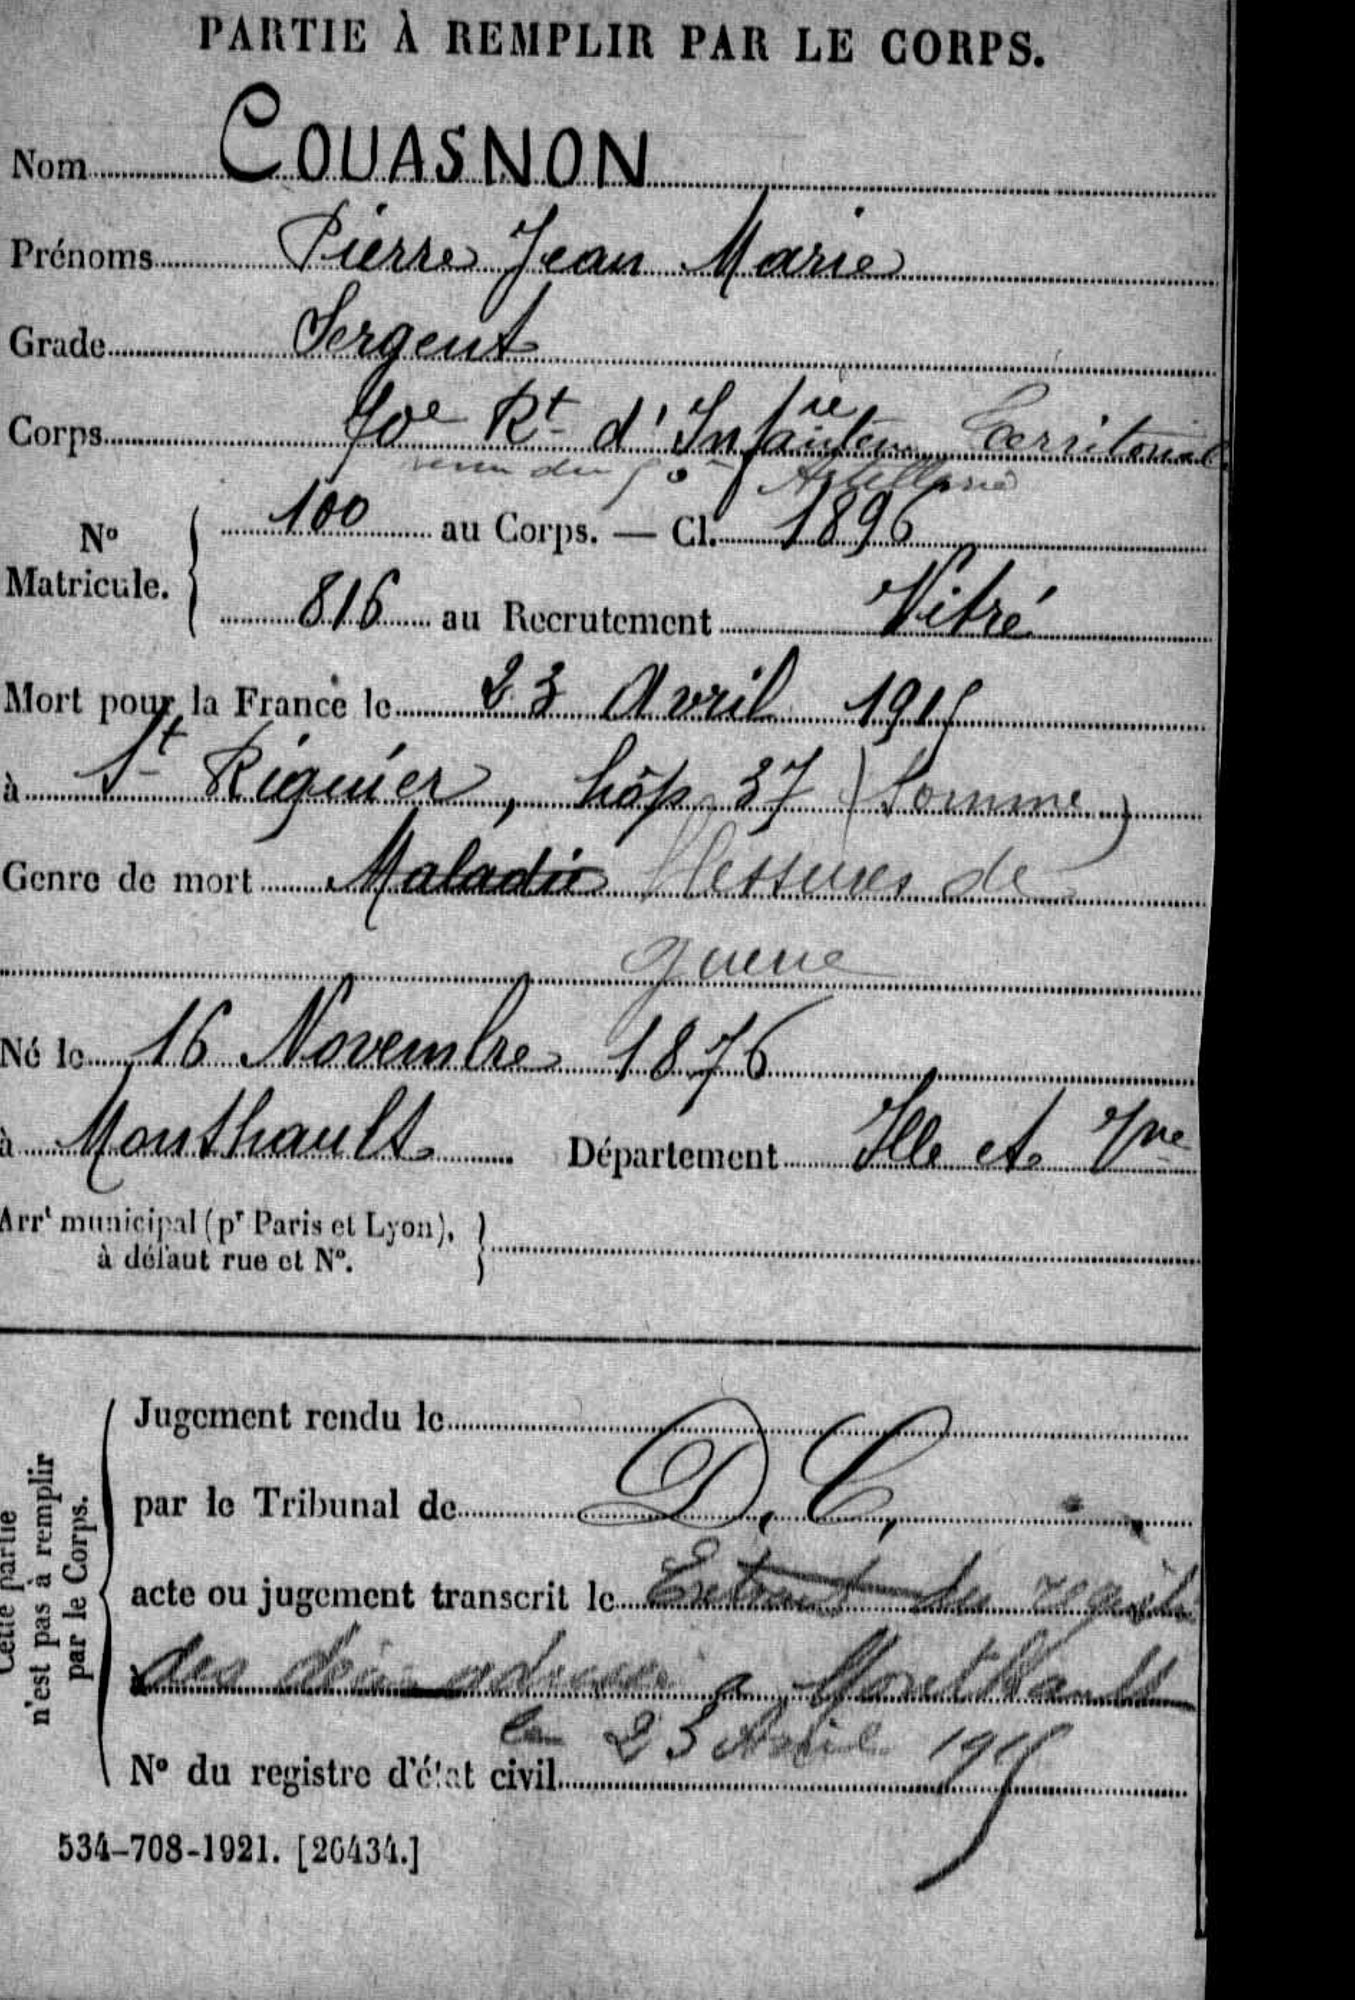 PARTIE À REMPLIR PAR LE CORPS.
Nom COUASNON
Prénoms Pierre Jean Marie
Grade Sergent
Corps 70e Rt d'Infanterie Territorial
du Artillerie
No Matricule. 100 au Corps. — Cl. 1896
816 au Recrutement Vitré
Mort pour la France le 23 Avril 1915
à St Riquier, hôp 37 (Somme)
Genre de mort Maladie blessures de
guerre
Né le 16 Novembre 1876
à Monthault Département Ille et Vne
Arrt municipal (pr Paris et Lyon),
à défaut rue et No.
Cette partie
n'est pas à remplir
par le Corps.
Jugement rendu le
par le Tribunal de D. C.
acte ou jugement transcrit le Extrait du
des a Monthault
le 23 Avril 1915
No du registre d'état civil
534-708-1921. [26434.]